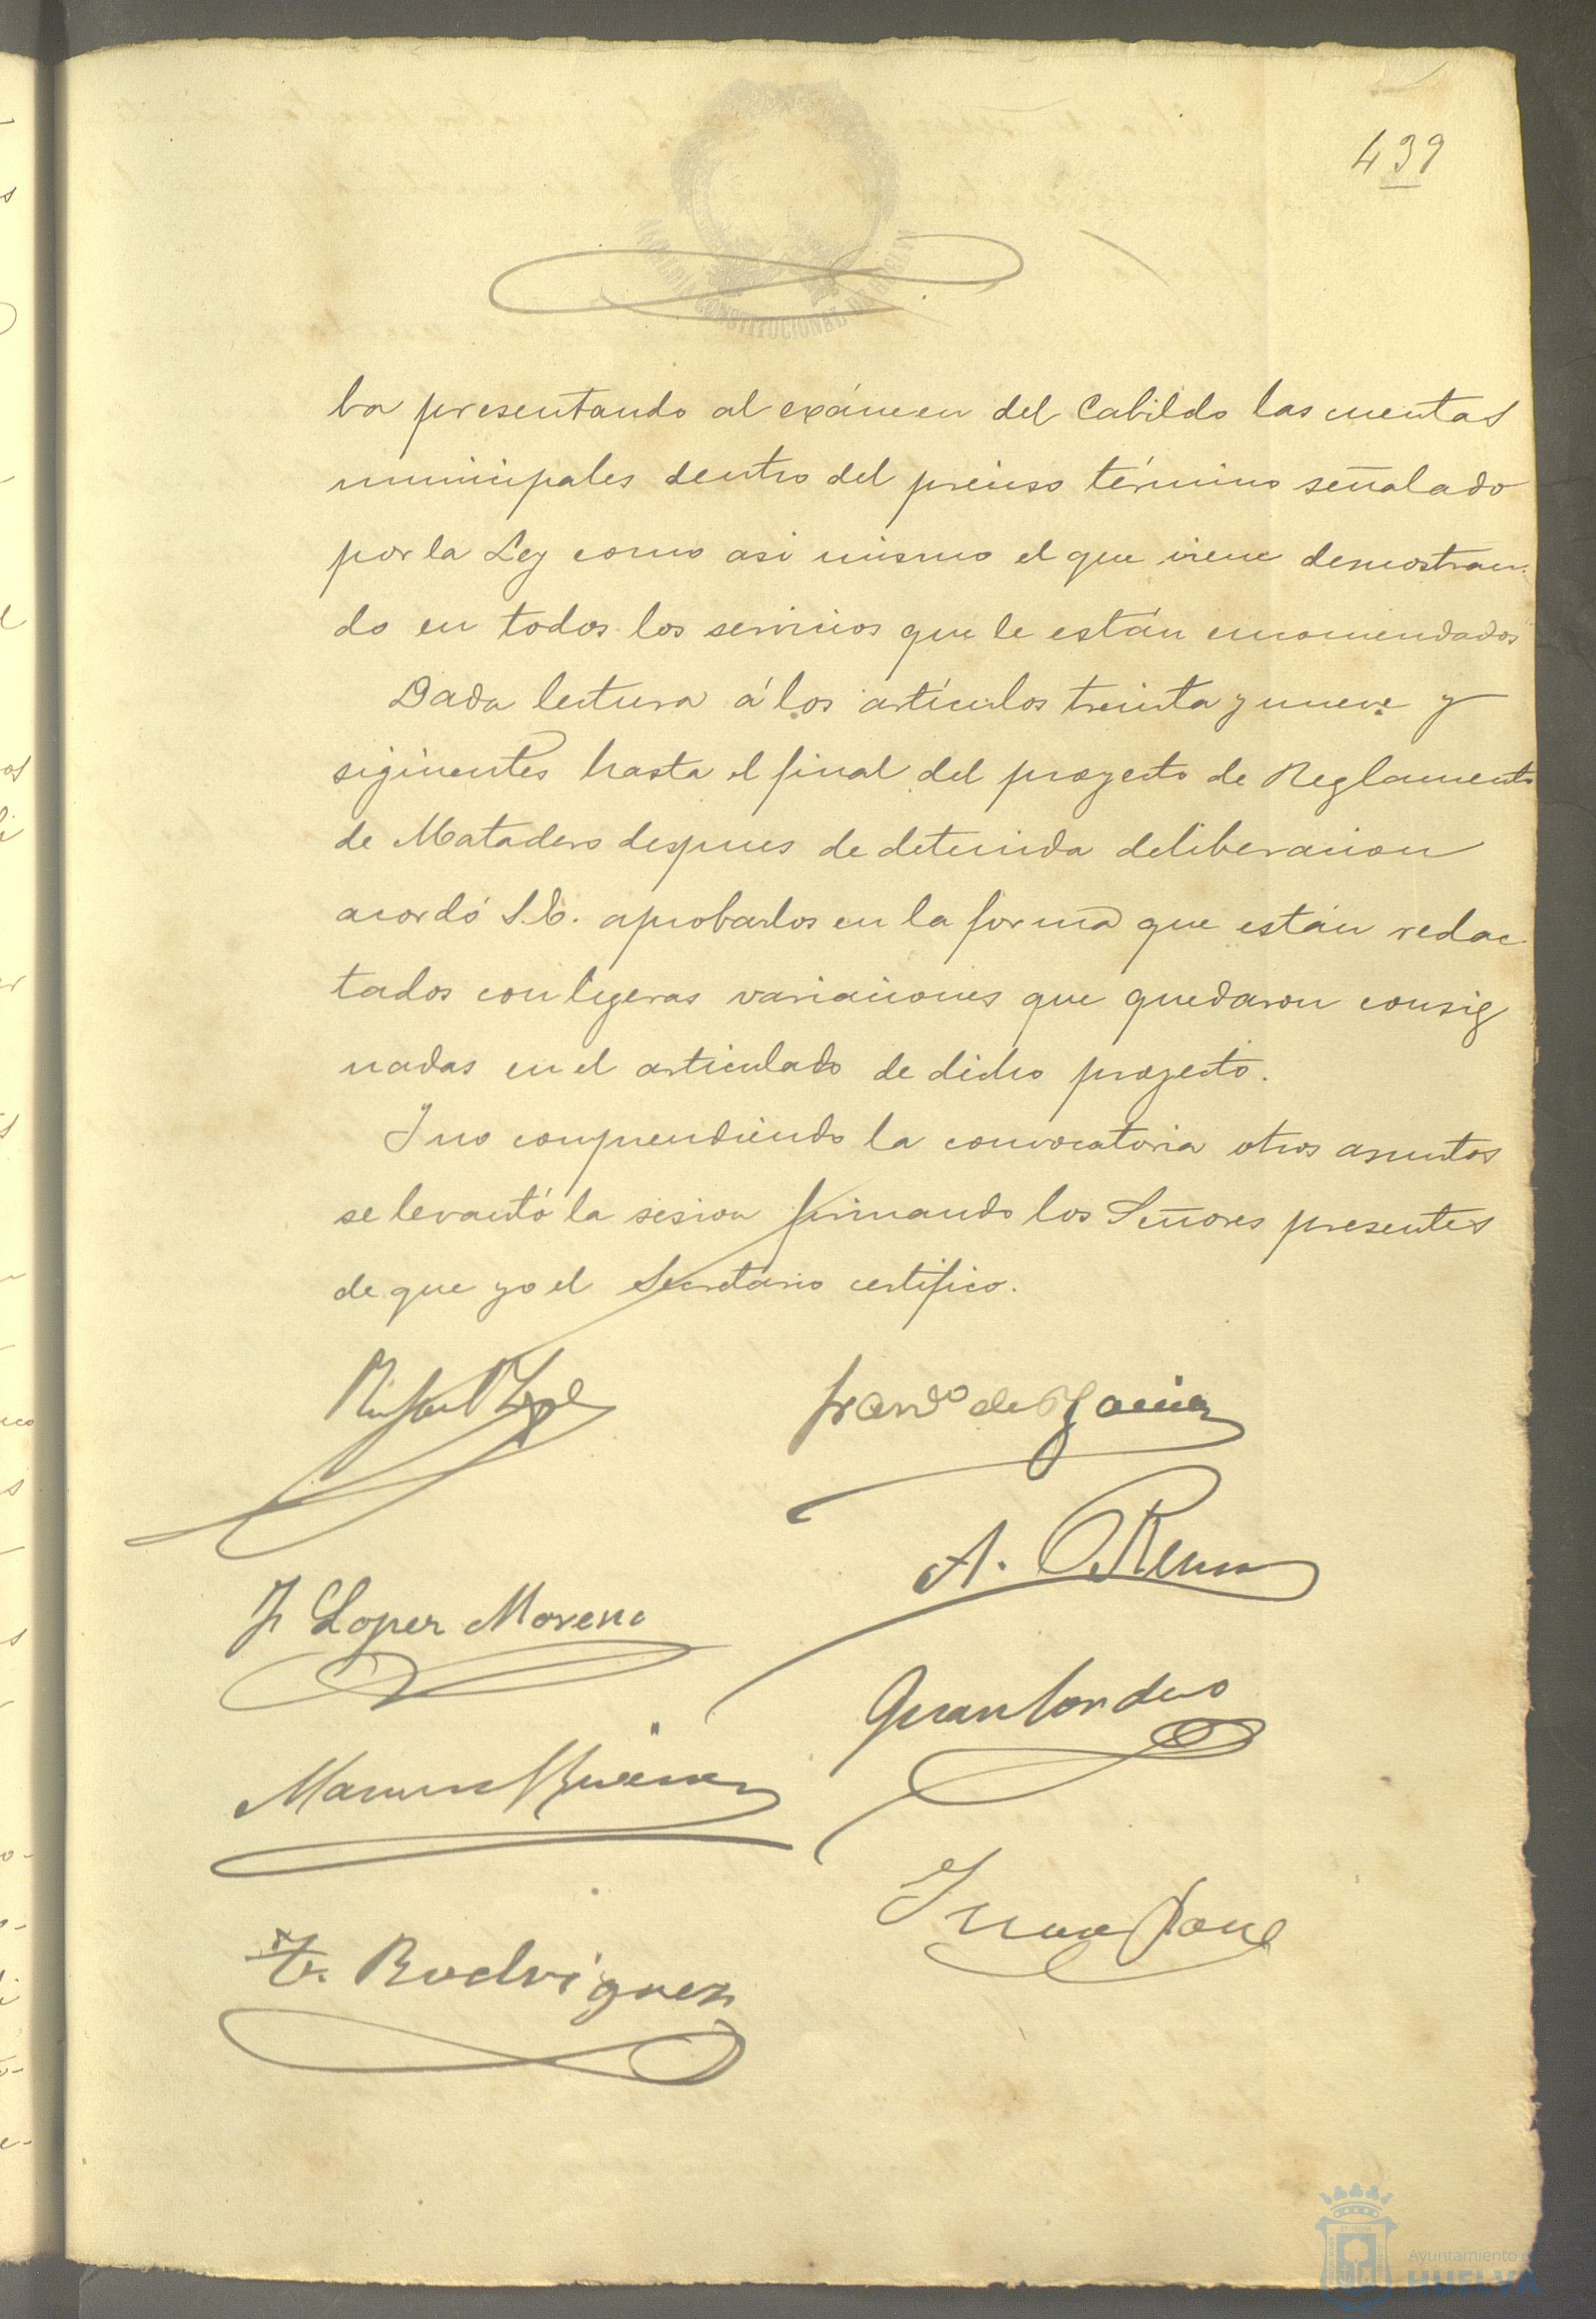 439
ALCALDIA CONSTITUCIONAL DE HUELVA
ba presentando al exámen del Cabildo las cuentas
municipales dentro del preciso término señalado
por la Ley como asi mismo el que viene demostran-
do en todos los servicios que le están encomendados
Dada lectura á los artículos treinta y nueve y
siguientes hasta el final del proyecto de Reglamento
de Matadero despues de detenida deliberacion
acordó S.E. aprobarlos en la forma que están redac
tados con ligeras variaciones que quedaron consig
nadas en el articulado de dicho proyecto.
Y no comprendiendo la convocatoria otros asuntos
se levantó la sesion firmando los Señores presentes
de que yo el Secretario certifico.
Franco de P García
A.
J Lopez Moreno
Manuel
F. Rodriguez
Ayuntamiento de
HUELVA